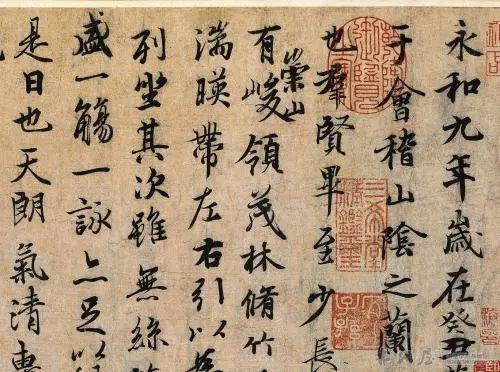 永和九年歲在癸丑
于會稽山陰之蘭
也羣賢畢至少長
崇山
有峻領茂林脩竹
湍暎帶左右引以為
列坐其次雖無絲
盛一觴一詠亦足以
是日也天朗氣清惠